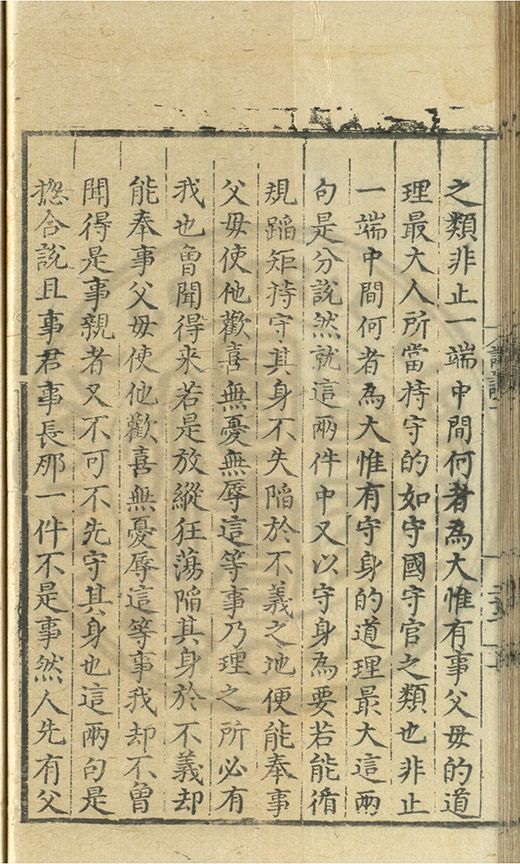 之類非止一端中間何者為大惟有事父母的道
理最大人所當持守的如守國守官之類也非止
一端中間何者為大惟有守身的道理最大這兩
句是分說然就這兩件中又以守身為要若能循
規蹈矩持守其身不失陷於不義之地便能奉事
父母使他歡喜無憂無辱這等事乃理之所必有
我也曾聞得来若是放縱狂蕩陷其身於不義却
能奉事父母使他歡喜無憂辱這等事我却不曾
聞得是事親者又不可不先守其身也這兩句是
揔合說且事君事長那一件不是事然人先有父